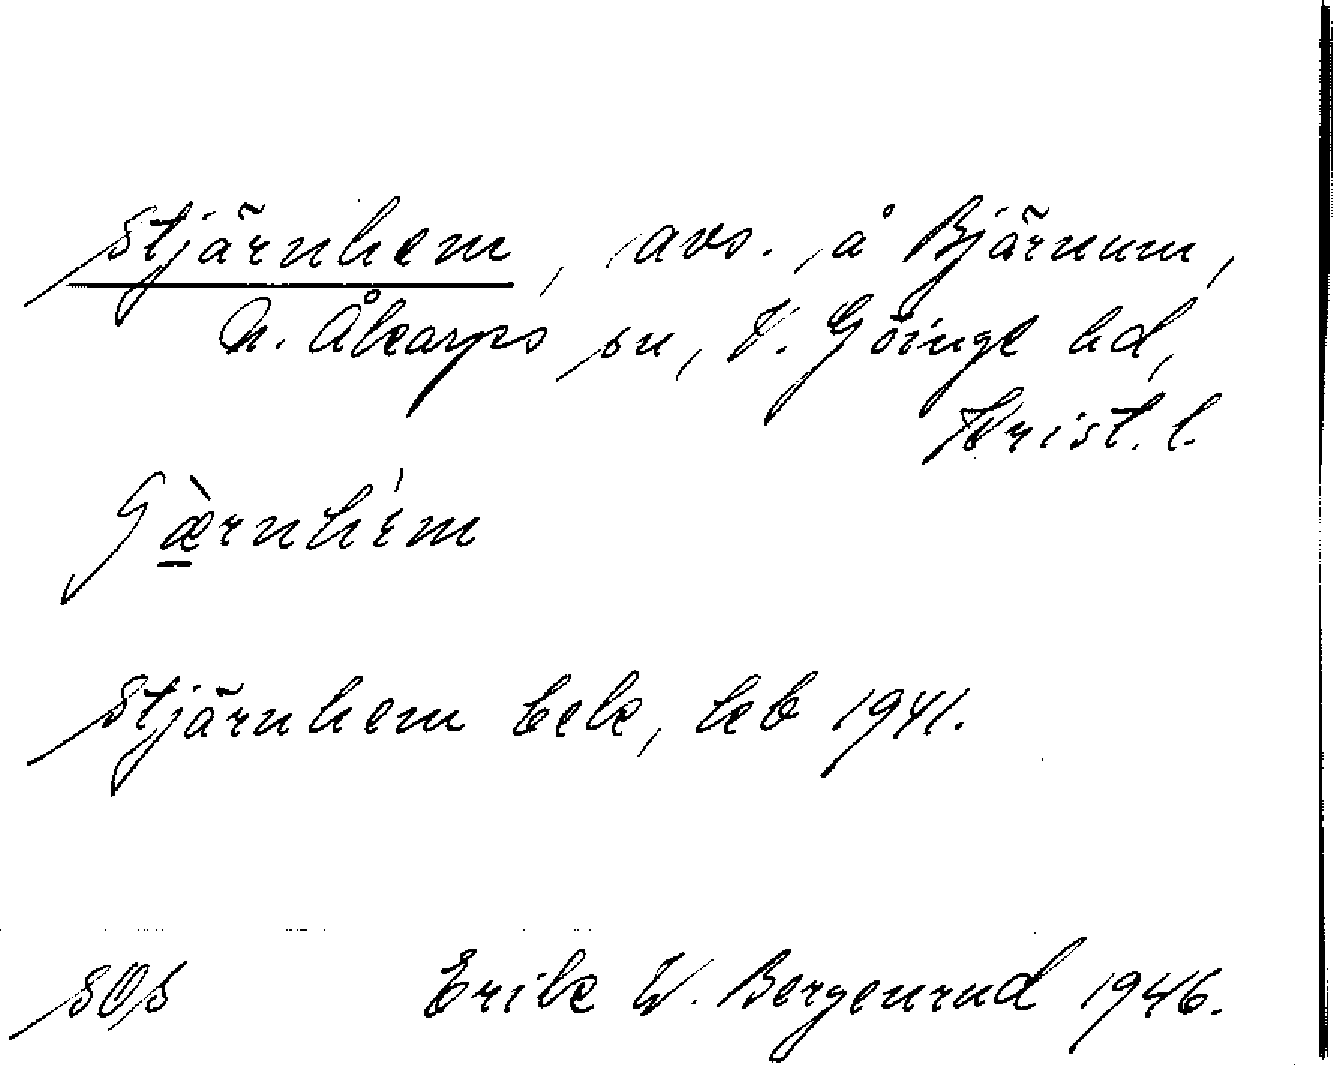 Stjärnhem, avs. å Bjärnum,
N. Åkarps sn, V. Göinge hd,
Krist. l.
Stjärnhem bek, kb 1941.
sOs Erik W. Bergenrud 1946.